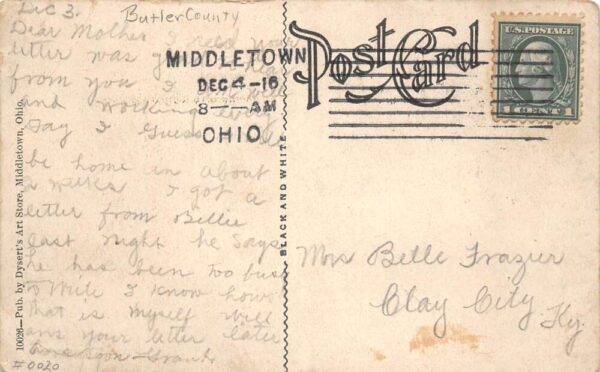 Dec 3.
Butler County
Dear Mother I rec'd your
letter was glad
from you I well
and working every
day I guess
be home in about
2 weeks I got a
letter from Bellie
last night he says
he has been too busy
to write I know how
that is myself will
ans your letter later
#0020
10026—Pub. by Dysert's Art Store, Middletown, Ohio.
BLACK AND WHITE
MIDDLETOWN
DEC 4-16
8— AM
OHIO
Post Card
U.S. POSTAGE
1 CENT 1
Mrs Belle Frazier
Clay City
Ky.